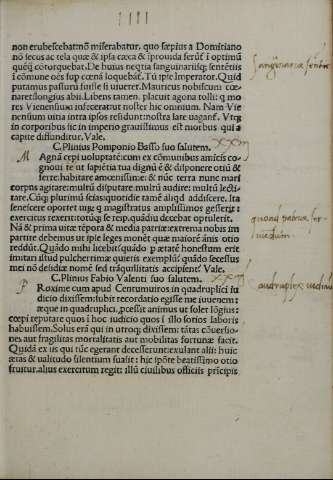 IIII
non erubescebat nõ miserabatur. quo sæpius a Domitiano
nõ secus ac tela quæ & ipsa cæca & ĩprouida ferũt ĩ optimũ
quẽq̃ cõtorquebat. De huius neq̃tia sanguinariisq; sentẽtiis
ĩ cõmune oẽs sup cœnã loquebãt. Tũ ipse Imperator. Quid
putamus passurũ fuisse si uiueret. Mauricus nobiscum cœ-
naret. longius abii. Libens tamen. placuit agona tolli: q̃ mo
res Viennensium infecerat: ut noster hic omnium. Nam Vie
nensium uitia intra ipsos residunt: nostra late uagant̃. Vtq;
in corporibus sic in imperio grauissimus est morbus qui a
capite diffunditur. Vale.
C. Plinius Pomponio Basso suo salutem. XXIII
M Agnã cepi uoluptatẽ: cum ex cõmunibus amicis co-
gnoui te ut sapiẽtia tua dignũ ẽ & disponere otiũ &
ferre. habitare amœnissime: & nũc terra nunc mari
corpus agitare: multũ disputare: multũ audire: multũ lecti-
tare. Cũq; plurimũ scias quotidie tamẽ aliqd addiscere. Ita
senescere oportet uirũ q̃ magistratus amplissimos gesserit:
exercitus rexerit: totũq; se reip. quãdiu decebat optulerit.
Nã & prima uitæ tẽpora & media patriæ: extrema nobis im
partire debemus ut ipse leges monẽt quæ maiorẽ ãnis otio
reddũt. Quãdo mihi licebit: quãdo p̃ ætatẽ honestum erit
imitari istud pulcherrimæ quietis exemplũ? quãdo secessus
mei nõ desidiæ nomẽ sed trãquillitatis accipient̃ Vale.
C. Plinius Fabio Valenti suo salutem. XXIIII
P Roxime cum apud Centumuiros in quadruplici iu
dicio dixissem: subit recordatio egisse me iuuenem:
æque in quadruplici. p̃cessit animus ut solet lõgius:
cœpi reputare quos ĩ hoc iudicio quos ĩ illo sotios laboris
habuissem. Solus erã qui in utroq; dixissem: tãtas cõuersio-
nes aut fragilitas mortalitatis aut mobilitas fortunæ facit.
Quidã ex iis qui tũc egerant decesserunt: exulant alii: huic
ætas & ualitudo silentium suasit: hic spõte beatissimo otio
fruitur. alius exercitum regit: illũ ciuilibus officiis prĩcipis